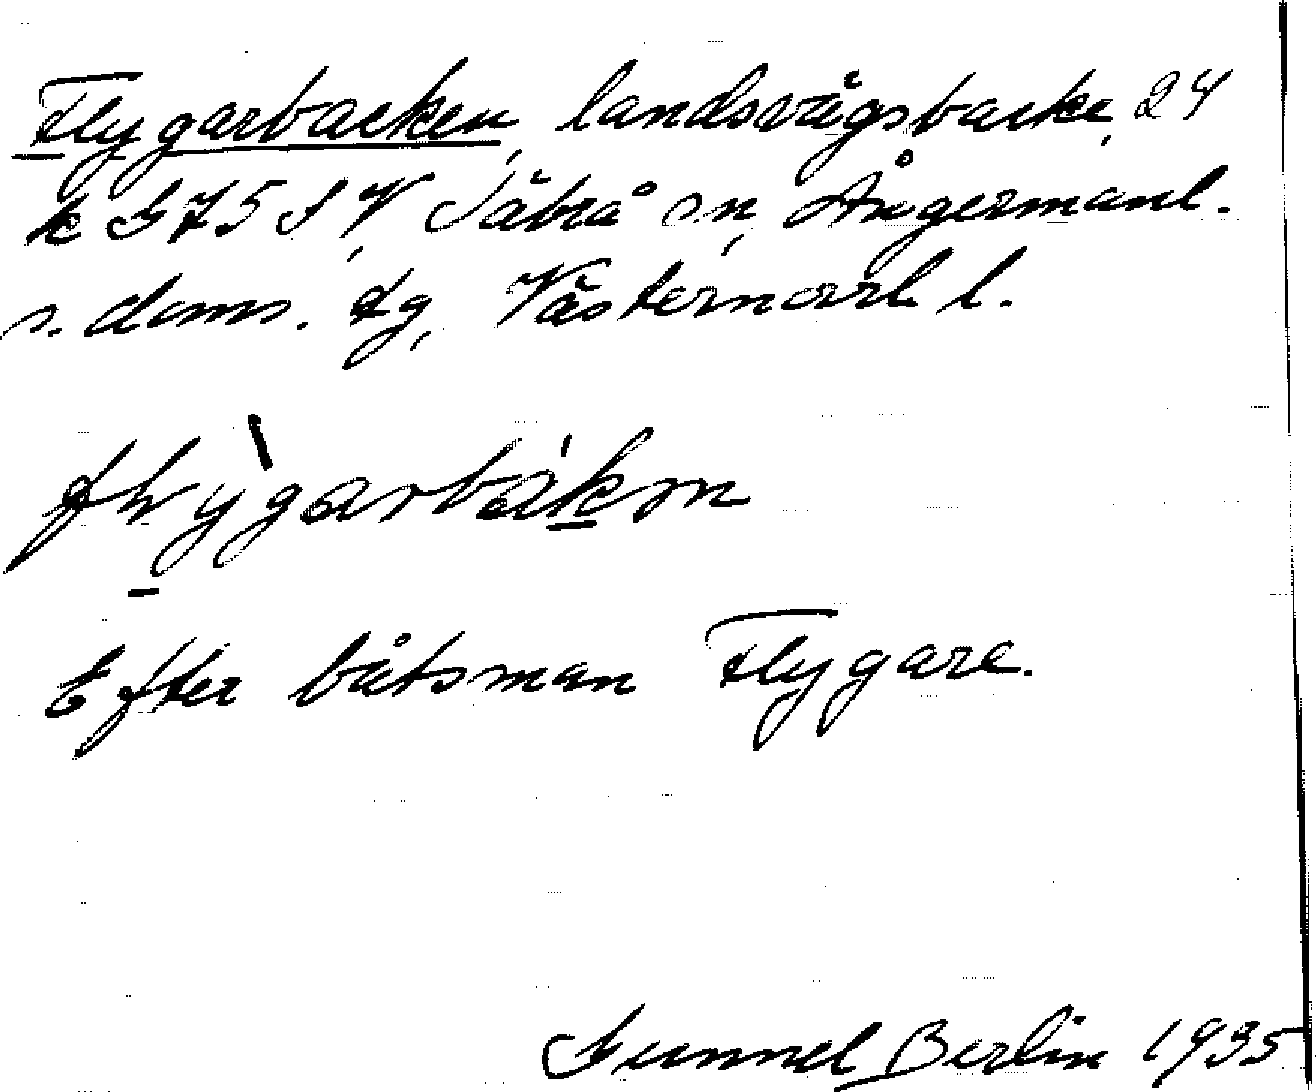 Flygarbacken, landsvägsbacke, 24
k G 75 S V, Säbrå sn, Ångermanl.
s. doms. tg, Västernorrl l.
flygarbakən
Efter båtsman Flygare.
Gunnel Berlin 1935